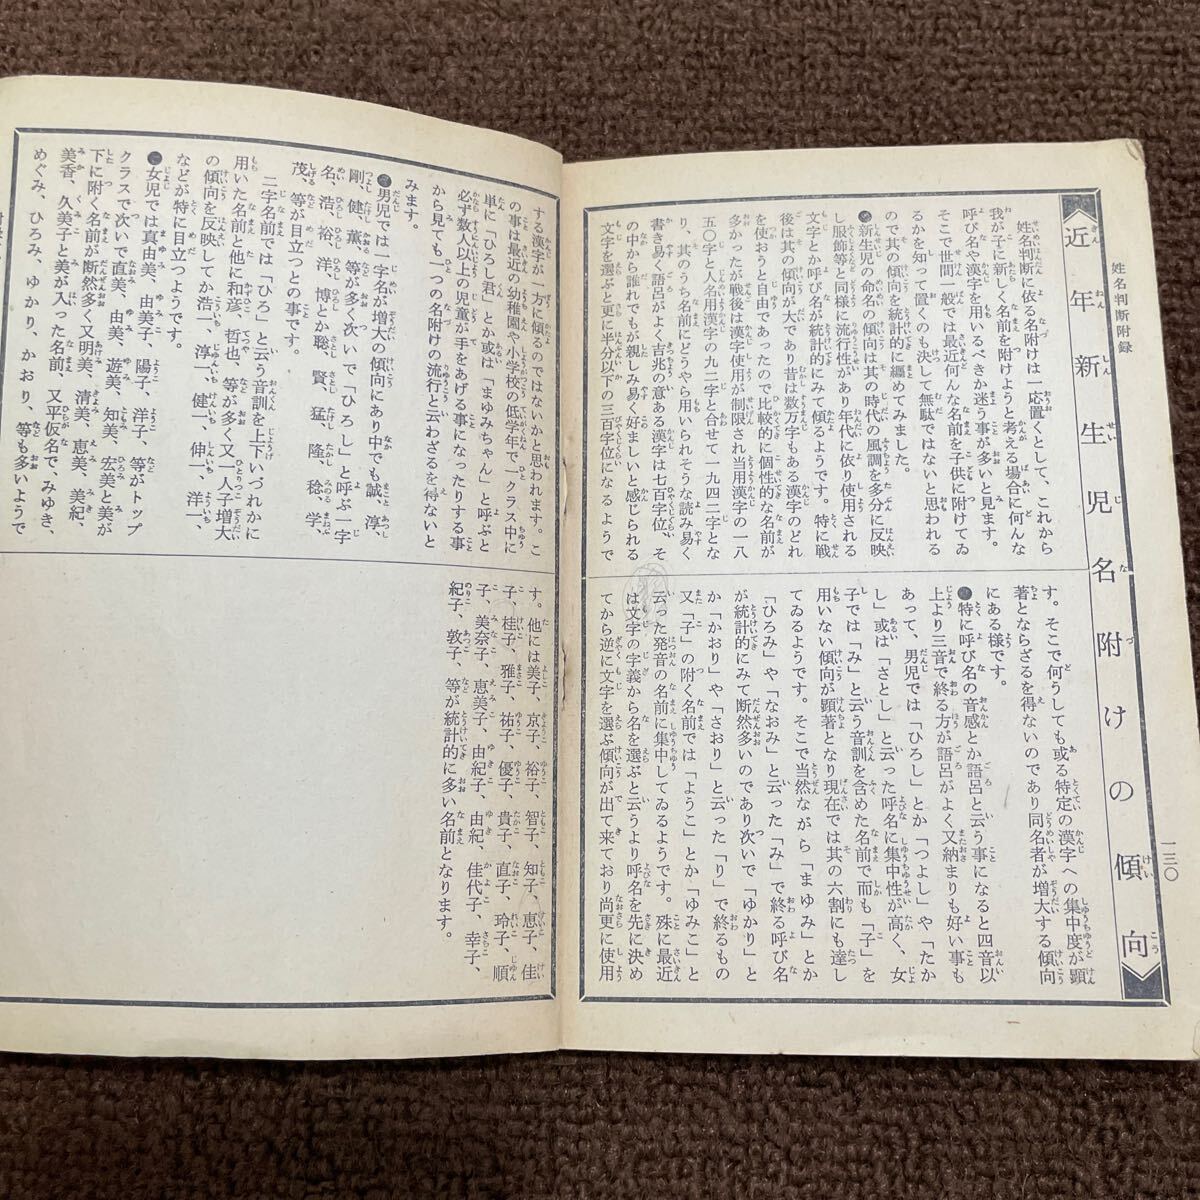 姓名判断附録
一三〇
近年新生児名附けの傾向
姓名判断に依る名附けは一応置くとして、これから
我が子に新しく名前を附けようと考える場合に何んな
呼び名や漢字を用いるべきか迷う事が多いと見ます。
そこで世間一般では最近何んな名前を子供に附けてゐ
るかを知って置くのも決して無駄ではないと思われる
ので其の傾向を統計的に纏めてみました。
●新生児の命名の傾向は其の時代の風調を多分に反映
し服飾等と同様に流行性があり年代に依り使用される
文字とか呼び名が統計的にみて傾るようです。特に戦
後は其の傾向が大であり昔は数万字もある漢字のどれ
を使おうと自由であったので比較的に個性的な名前が
多かったが戦後は漢字使用が制限され当用漢字の一八
五〇字と人名用漢字の九二字と合せて一九四二字とな
り、其のうち名前にどうやら用いられそうな読み易く
書き易く語呂がよく吉兆の意ある漢字は七百字位、そ
の中から誰れでもが親しみ易く好ましいと感じられる
文字を選ぶと更に半分以下の三百字位になるようで
す。そこで何うしても或る特定の漢字への集中度が顕
著とならざるを得ないのであり同名者が増大する傾向
にある様です。
●特に呼び名の音感とか語呂と云う事になると四音以
上より三音で終る方が語呂がよく又納まりも好い事も
あって、男児では「ひろし」とか「つよし」や「たか
し」或は「さとし」と云った呼名に集中性が高く、女
子では「み」と云う音訓を含めた名前で而も「子」を
用いない傾向が顕著となり現在では其の六割にも達し
てゐるようです。そこで当然ながら「まゆみ」とか
「ひろみ」や「なおみ」と云った「み」で終る呼び名
が統計的にみて断然多いのであり次いで「ゆかり」と
か「かおり」や「さおり」と云った「り」で終るもの
又「子」の附く名前では「ようこ」とか「ゆみこ」と
云った発音の名前に集中してゐるようです。殊に最近
は文字の字義から名を選ぶと云うより呼名を先に決め
てから逆に文字を選ぶ傾向が出て来ており尚更に使用
する漢字が一方に傾るのではないかと思われます。こ
の事は最近の幼稚園や小学校の低学年で一クラス中に
単に「ひろし君」とか或は「まゆみちゃん」と呼ぶと
必ず数人以上の児童が手をあげる事になったりする事
から見ても一つの名附けの流行と云わざるを得ないと
みます。
●男児では一字名が増大の傾向にあり中でも誠、淳、
剛、健、薫、等が多く次いで「ひろし」と呼ぶ一字
名、浩、裕、洋、博とか聡、賢、猛、隆、稔、学、
茂、等が目立つとの事です。
二字名前では「ひろ」と云う音訓を上下いづれかに
用いた名前と他に和彦、哲也、等が多く又一人子増大
の傾向を反映してか浩一、淳一、健一、伸一、洋一、
などが特に目立つようです。
●女児では真由美、由美子、陽子、洋子、等がトップ
クラスで次いで直美、由美、遊美、知美、宏美と美が
下に附く名前が断然多く又明美、清美、恵美、美紀、
美香、久美子と美が入った名前、又平仮名で、みゆき、
めぐみ、ひろみ、ゆかり、かおり、等も多いようで
す。他には美子、京子、裕子、智子、知子、恵子、佳
子、桂子、雅子、祐子、優子、貴子、直子、玲子、順
子、美奈子、恵美子、由紀子、由紀、佳代子、幸子、
紀子、敦子、等が統計的に多い名前となります。